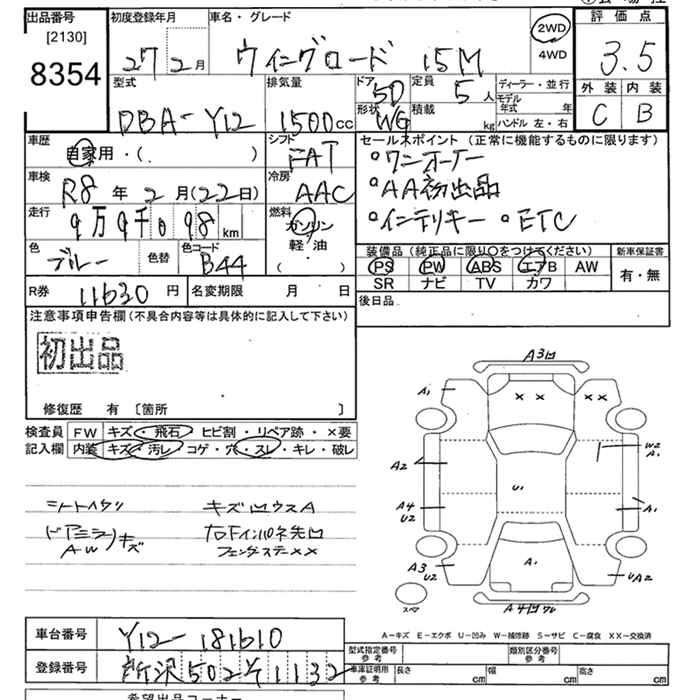 出品番号 [2130] 8354
初度登録年月 27年2月
車名・グレード ウイングロード 15M
2WD 4WD
評価点 3.5
外装 内装
C B
型式 DBA-Y12
排気量 1500cc
ドア 5D
形状 WG
定員 5人
積載 kg
ディーラー・並行
モデル年式 年
ハンドル 左・右
車歴 自家用・( )
シフト FAT
車検 R8年2月(22日)
冷房 AAC
走行 9万9千098km
燃料 ガソリン 軽・油 ( )
色 ブルー 色替 色コード B44
セールスポイント (正常に機能するものに限ります)
・ワンオーナー
・AA初出品
・インテリキー ・ETC
装備品 (純正品に限り○をつけてください) 新車保証書
PS PW ABS エアB AW 有・無
SR ナビ TV カワ
R券 11630円 名変期限 月 日
後日品
注意事項申告欄 (不具合内容等は具体的に記入して下さい)
初出品
修復歴 有 〔箇所 〕
検査員 FW キズ・飛石 ヒビ割・リペア跡・×要
記入欄 内装 キズ・汚レ・コゲ・穴・スレ・キレ・破レ
シートヘタリ キズ凹ウスA
ドアミラー キズ 右Fインパネ先凹
AW フェンダステー××
A3凹
A1
× ×
A2
W2
A1
U1
A4
U2
A1
A3
U2
A1
UA2
スペア
A4凹ワレ
A-キズ E-エクボ U-凹み W-補修跡 S-サビ C-腐食 XX-交換済
車台番号 Y12-181610
登録番号 所沢502そ1132
型式指定番号 参考 類別区分番号 参考
車庫証明用 参考 長さ cm 幅 cm 高さ cm
希望出品コーナー